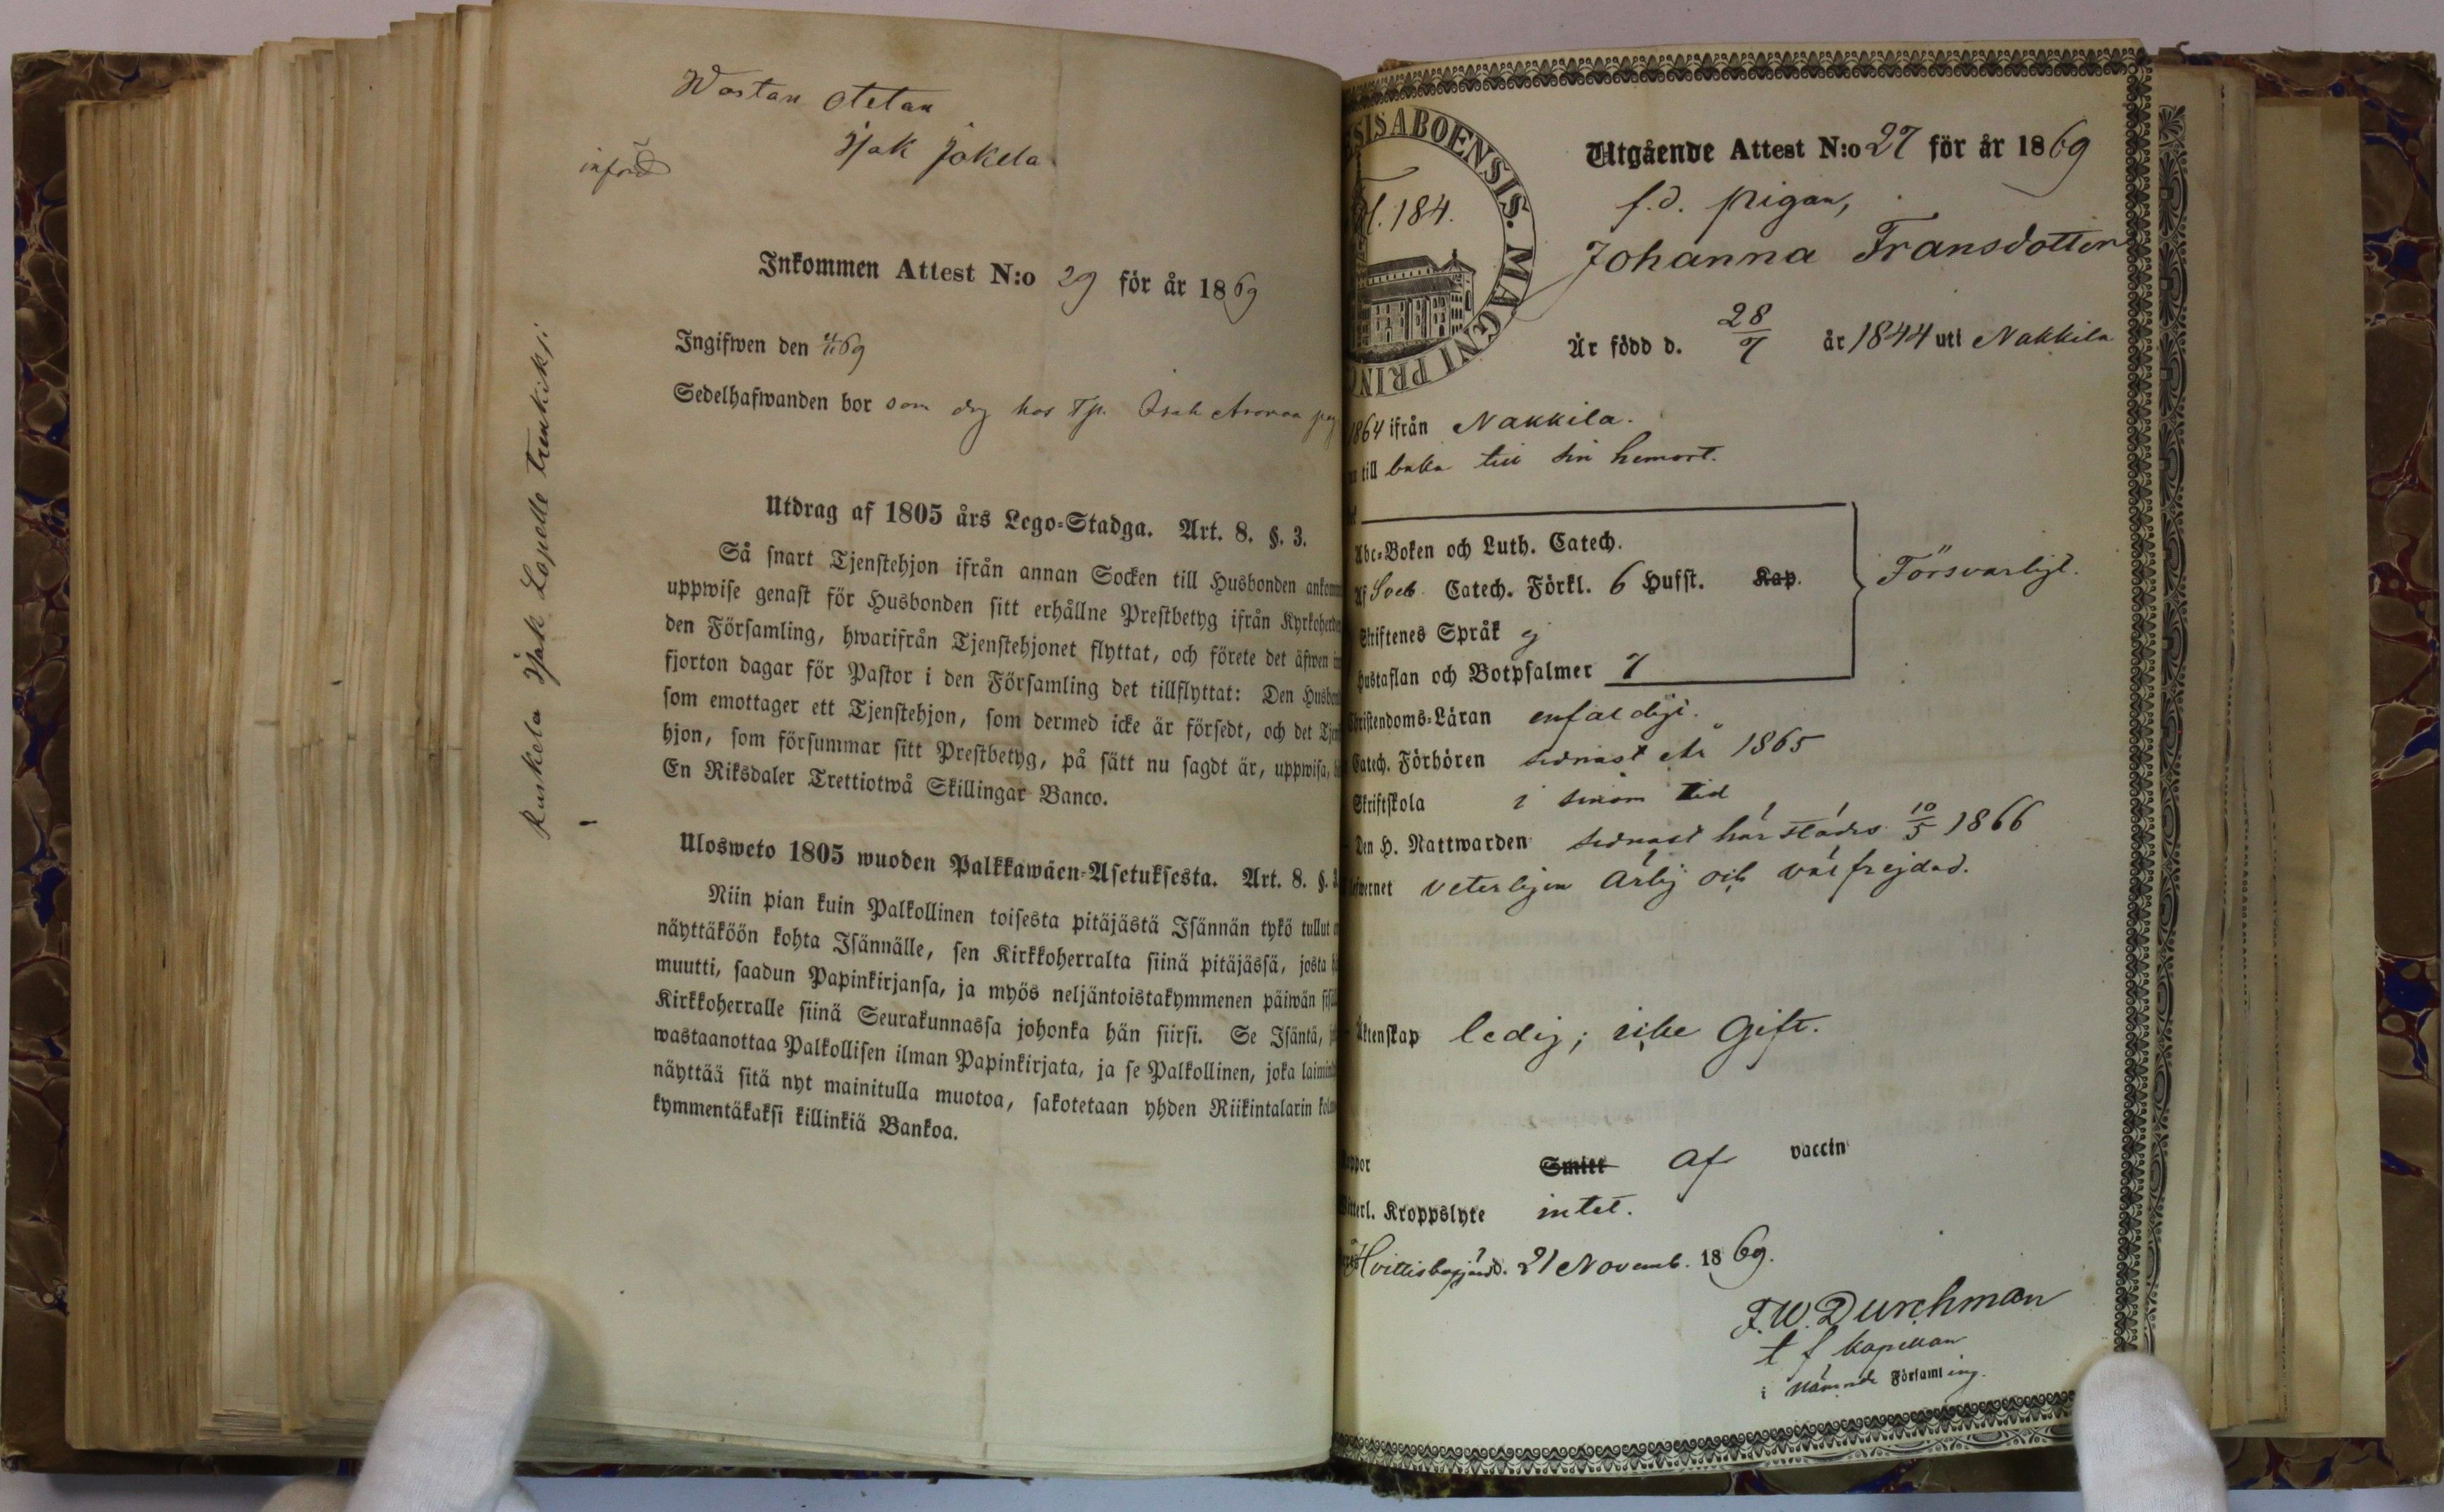 Wastan otetan
Isak Jokela
införd
Inkommen Attest N:o 29 för år 1869
Ingifwen den 69
Sedelhafwanden bor som drg hos Isak
Utdrag af 1805 års Lego-Stadga. Art. 8. §. 3.
Så snart Tjenstehjon ifrån annan Socken till Husbonden
uppwise genast för Husbonden sitt erhållne Prestbetyg ifrån
den Församling, hwarifrån Tjenstehjonet flyttat, och förete det äfwen
fjorton dagar för Pastor i den Församling det tillflyttat: Den
som emottager ett Tjenstehjon, som dermed icke är försedt, och det
hjon, som försummar sitt Prestbetyg, på sätt nu sagdt är, uppwisa,
En Riksdaler Trettiotwå Skillingar Banco.
Ulosweto 1805 wuoden Palkkawäen-Asetuksesta. Art. 8. §.
Niin pian kuin Palkollinen toisesta pitäjästä Isännän tykö tullut
näyttäköön kohta Isännälle, sen Kirkkoherralta siinä pitäjässä, josta
muutti, saadun Papinkirjansa, ja myös neljäntoistakymmenen päiwän
Kirkkoherralle siinä Seurakunnassa johonka hän siirsi. Se Isäntä,
wastaanottaa Palkollisen ilman Papinkirjata, ja se Palkollinen, joka
näyttää sitä nyt mainitulla muotoa, sakotetaan yhden Riikintalarin
kymmentäkaksi killinkiä Bankoa.
Isak
SISABOENSIS. MAGNI PRIN
184.
Utgående Attest N:o 27 för år 1869
f.d. pigan,
Johanna Fransdotter
Är född d. 28/7 år 1844 uti Nakkila
1864 ifrån Nakkila.
till baka till sin hemort.
Abc-Boken och Luth. Catech.
Af Sveb. Catech. Förkl. 6 Hufst. Kap.
Försvarligt.
Skriftenes Språk ej
Hustaflan och Botpsalmer 7
Christendoms-Läran enfaldigt.
Catech. Förhören sednast År 1865
Skriftskola i sinom tid
Den H. Nattwarden sednast härstädes 10/5 1866
veterligen ärlig och välfrejdad.
Äktenskap ledig; icke Gift.
Smitt af vaccin
Kroppslyte intet.
d. 21 Novemb. 1869.
F. W. Durchman
t f kapellan
i nämnde Församling.